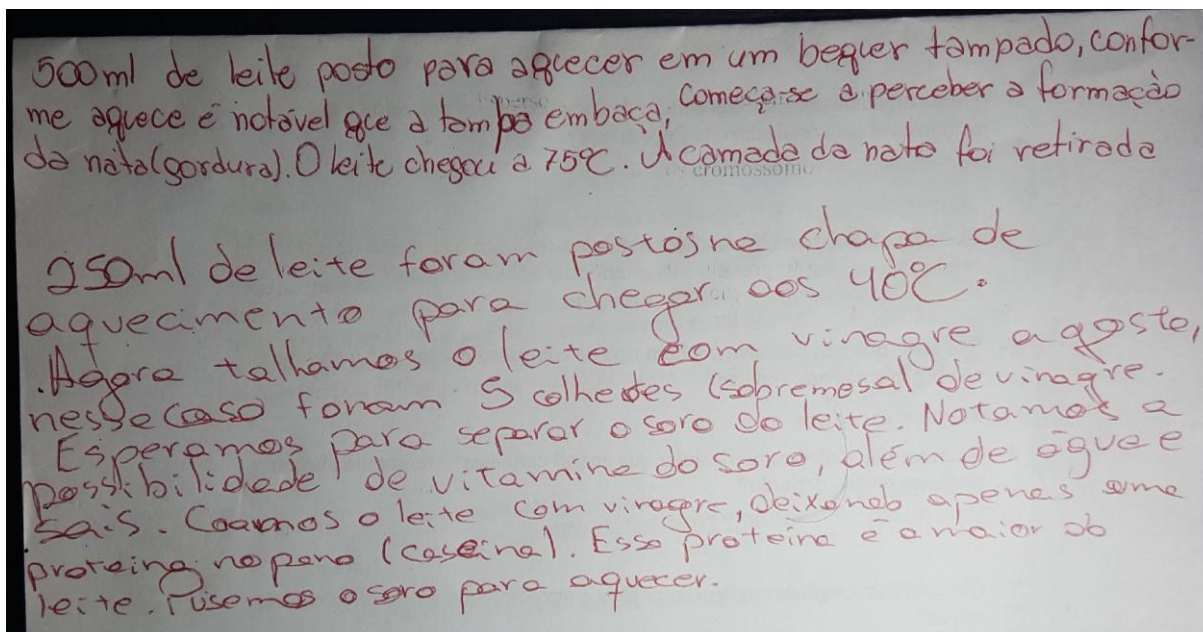 500ml de leite posto para aquecer em um bequer tampado, confor-
me aquece é notável que a tampa embaça, começa-se a perceber a formação
da nata (gordura). O leite chegou a 75°C. A camada de nata foi retirada
cromossomo
250ml de leite foram postos na chapa de
aquecimento para chegar aos 40°C.
. Agora talhamos o leite com vinagre a gosto,
nesse caso foram 5 colheres (sobremesa) de vinagre.
Esperamos para separar o soro do leite. Notamos a
possibilidade de vitamina do soro, além de água e
sais. Coamos o leite com vinagre, deixando apenas uma
proteína no pano (caseína). Essa proteína é a maior do
leite. Pusemos o soro para aquecer.